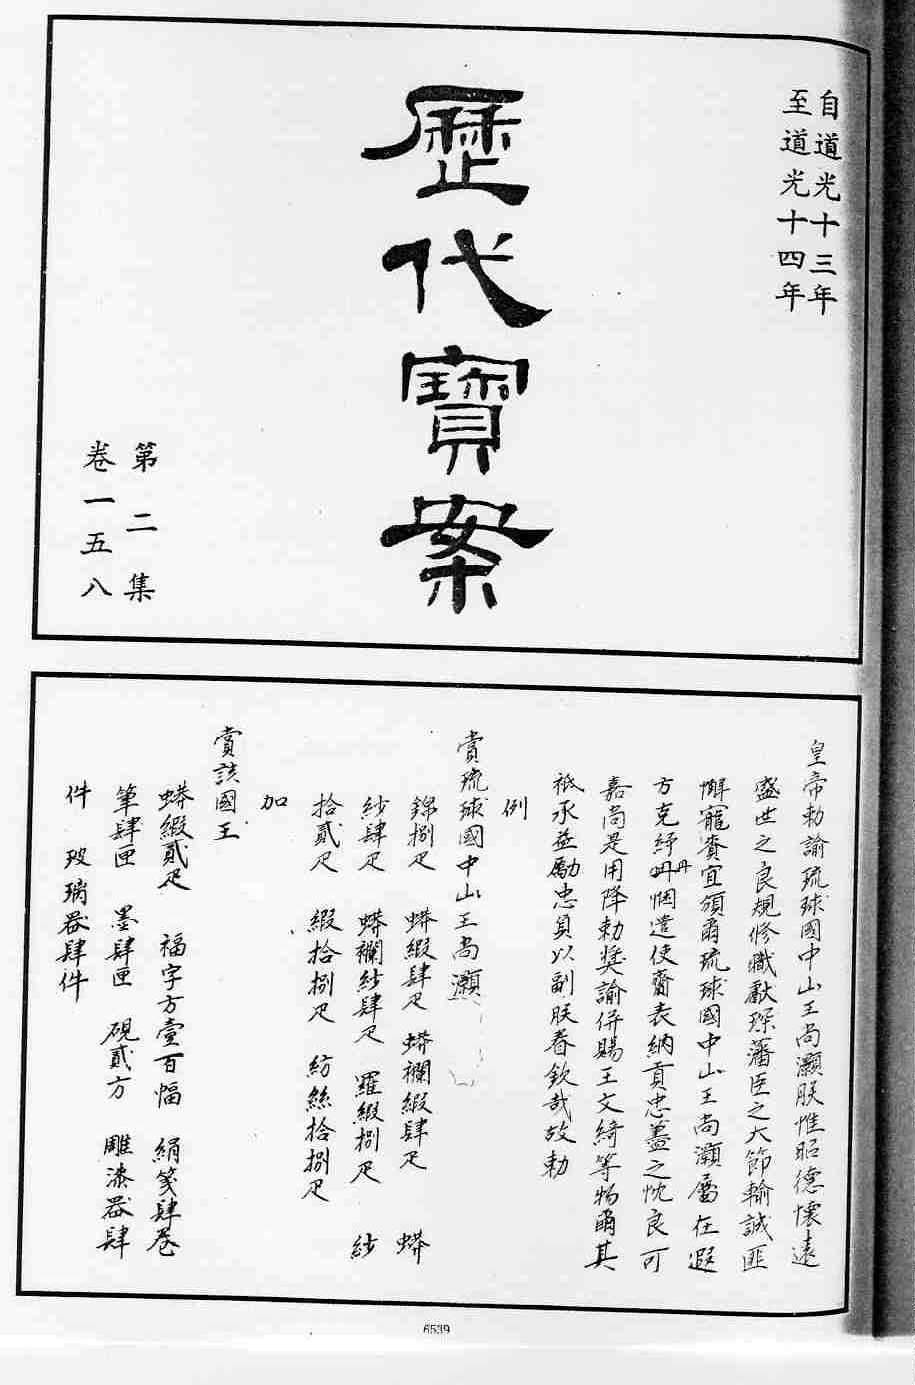 自道光十三年
至道光十四年
歷代寶案
第二集
卷一五八
皇帝勅諭琉球國中山王尚灝朕惟昭德懷遠
盛世之良規修職獻琛藩臣之大節輸誠匪
懈寵賚宜頒爾琉球國中山王尚灝屬在遐
方克紓丹悃遣使齎表納貢忠藎之忱良可
嘉尚是用降勅獎諭併賜王文綺等物爾其
祗承益勵忠貞以副朕眷欽哉故勅
例
賞琉球國中山王尚灝
錦捌疋 蟒緞肆疋 蟒襴緞肆疋 蟒
紗肆疋 蟒襴紗肆疋 羅緞捌疋 紗
拾貳疋 緞拾捌疋 紡絲拾捌疋
加
賞該國王
蟒緞貳疋 福字方壹百幅 絹箋肆卷
筆肆匣 墨肆匣 硯貳方 雕漆器肆
件 玻璃器肆件
6539